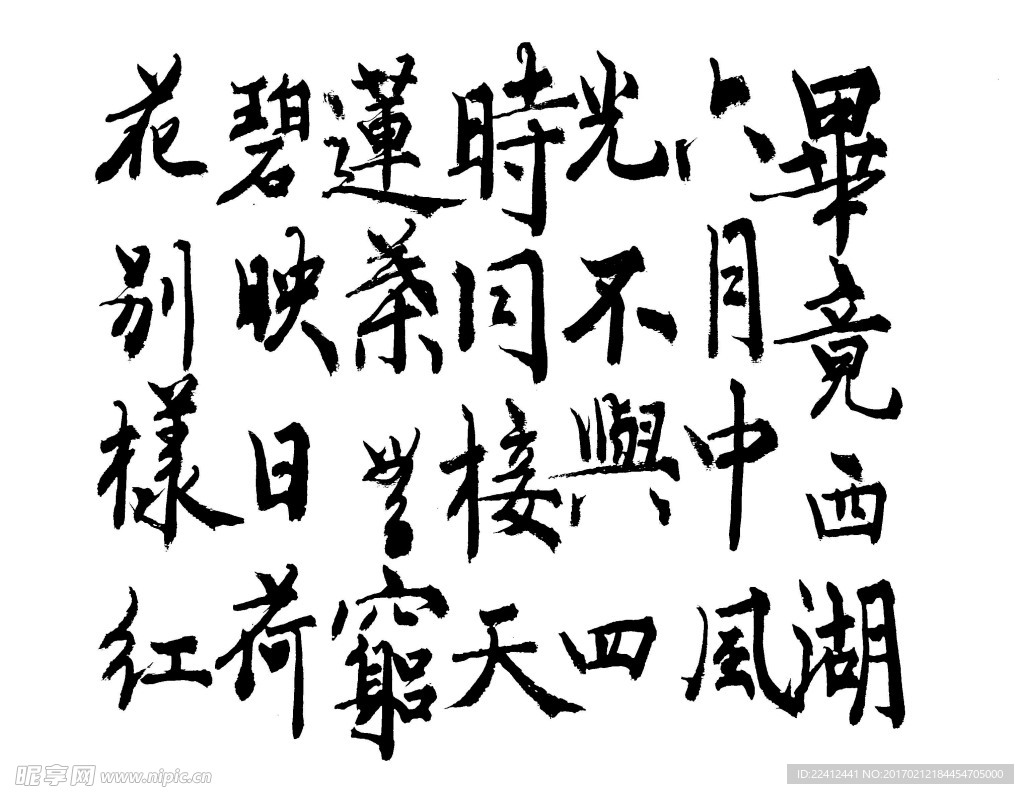 畢竟西湖
六月中風
光不與四
時同接天
蓮葉無窮
碧映日荷
花別樣紅
昵享网 www.nipic.cn
ID:22412441 NO:20170212184454705000